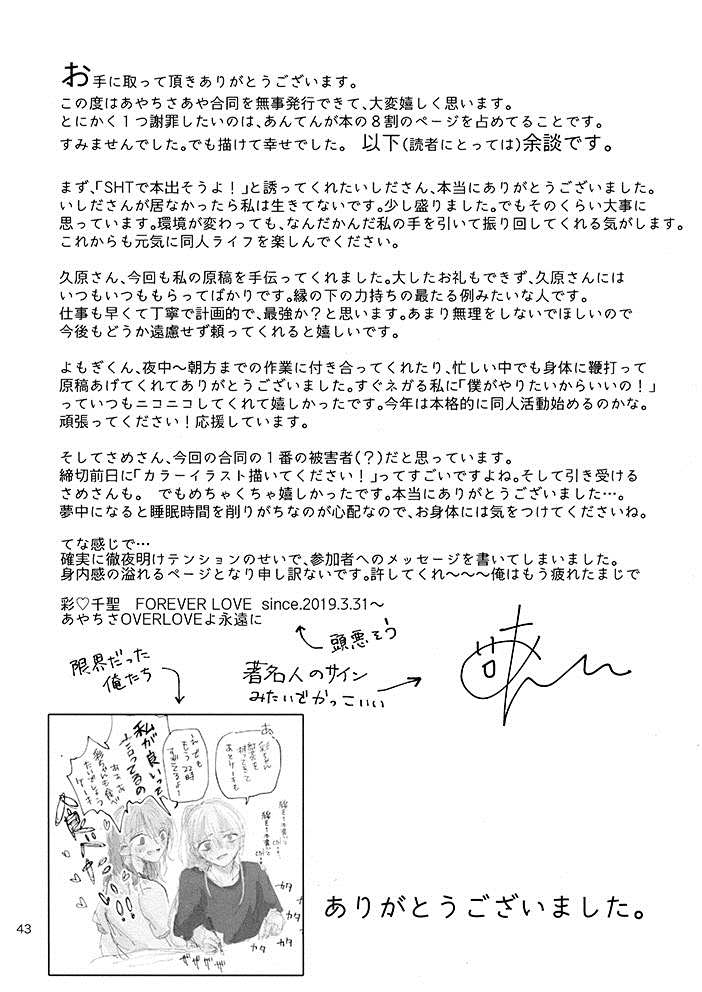 お手に取って頂きありがとうございます。
この度はあやちさあや合同を無事発行できて、大変嬉しく思います。
とにかく１つ謝罪したいのは、あんてんが本の８割のページを占めてることです。
すみませんでした。でも描けて幸せでした。　以下(読者にとっては)余談です。
まず、「SHTで本出そうよ！」と誘ってくれたいしださん、本当にありがとうございました。
いしださんが居なかったら私は生きてないです。少し盛りました。でもそのくらい大事に
思っています。環境が変わっても、なんだかんだ私の手を引いて振り回してくれる気がします。
これからも元気に同人ライフを楽しんでください。
久原さん、今回も私の原稿を手伝ってくれました。大したお礼もできず、久原さんには
いつもいつももらってばかりです。縁の下の力持ちの最たる例みたいな人です。
仕事も早くて丁寧で計画的で、最強か？と思います。あまり無理をしないでほしいので
今後もどうか遠慮せず頼ってくれると嬉しいです。
よもぎくん、夜中～朝方までの作業に付き合ってくれたり、忙しい中でも身体に鞭打って
原稿あげてくれてありがとうございました。すぐネガる私に「僕がやりたいからいいの！」
っていつもニコニコしてくれて嬉しかったです。今年は本格的に同人活動始めるのかな。
頑張ってください！応援しています。
そしてさめさん、今回の合同の１番の被害者(？)だと思っています。
締切前日に「カラーイラスト描いてください！」ってすごいですよね。そして引き受ける
さめさんも。　でもめちゃくちゃ嬉しかったです。本当にありがとうございました…。
夢中になると睡眠時間を削りがちなのが心配なので、お身体には気をつけてくださいね。
てな感じで…
確実に徹夜明けテンションのせいで、参加者へのメッセージを書いてしまいました。
身内感の溢れるページとなり申し訳ないです。許してくれ～～～俺はもう疲れたまじで
彩♡千聖　FOREVER LOVE　since.2019.3.31～
あやちさOVERLOVEよ永遠に
頭悪そう
限界だった
俺たち
著名人のサイン
みたいでかっこいい
あ、彩ちゃん
えでも
もう22時
すぎてるよ！
私が良いって
言ってるの
カタ
カタ
カタ
ザザザザ
ありがとうございました。
43